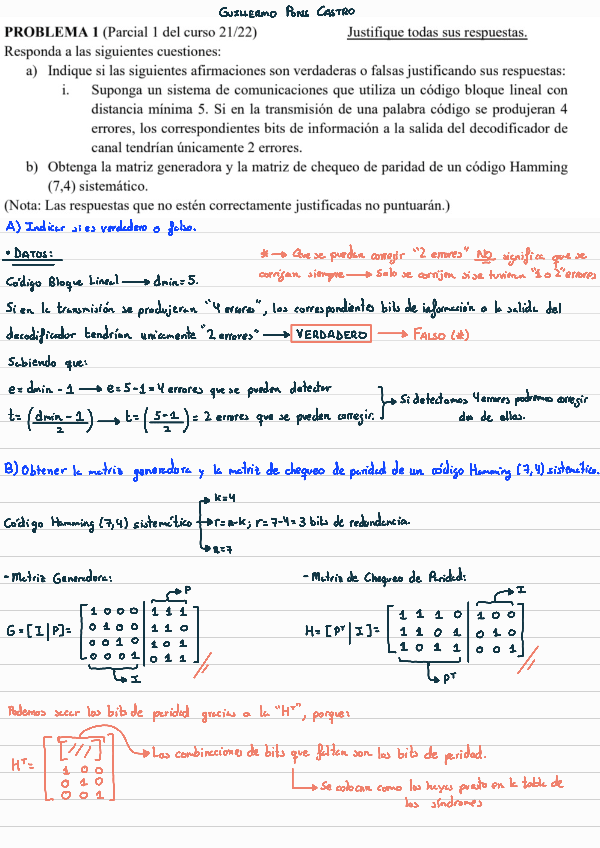 GUILLERMO PONS CASTRO
PROBLEMA 1 (Parcial 1 del curso 21/22) Justifique todas sus respuestas.
Responda a las siguientes cuestiones:
a) Indique si las siguientes afirmaciones son verdaderas o falsas justificando sus respuestas:
i. Suponga un sistema de comunicaciones que utiliza un código bloque lineal con
distancia mínima 5. Si en la transmisión de una palabra código se produjeran 4
errores, los correspondientes bits de información a la salida del decodificador de
canal tendrían únicamente 2 errores.
b) Obtenga la matriz generadora y la matriz de chequeo de paridad de un código Hamming
(7,4) sistemático.
(Nota: Las respuestas que no estén correctamente justificadas no puntuarán.)
A) Indicar si es verdadero o falso.
• DATOS:
* → Que se puedan corregir "2 errores" NO significa que se
corrijan siempre → Solo se corrijen si se tuvieran "1 o 2" errores
Código Bloque Lineal → dmin = 5.
Si en la transmisión se produjeran "4 errores", los correspondientes bits de información a la salida del
decodificador tendrían unicamente "2 errores" → VERDADERO → FALSO (*)
Sabiendo que:
e = dmin - 1 → e = 5 - 1 = 4 errores que se pueden detectar
t = (dmin - 1 / 2) → t = (5-1 / 2) = 2 errores que se pueden corregir.
→ Si detectamos 4 errores podremos corregir
dos de ellos.
B) Obtener la matriz generadora y la matriz de chequeo de paridad de un código Hamming (7,4) sistemático.
k = 4
Código Hamming (7,4) sistemático → r = n-k; r = 7-4 = 3 bits de redundancia.
n = 7
- Matriz Generadora: - Matriz de Chequeo de Paridad:
→ P → I
G = [I|P] = [1 0 0 0 | 1 1 1
0 1 0 0 | 1 1 0
0 0 1 0 | 1 0 1
0 0 0 1 | 0 1 1]
→ I
H = [Pᵀ|I] = [1 1 1 0 | 1 0 0
1 1 0 1 | 0 1 0
1 0 1 1 | 0 0 1]
→ Pᵀ
Podemos sacar los bits de paridad gracias a la "Hᵀ", porque:
Hᵀ = [[///]
1 0 0
0 1 0
0 0 1]
→ Las combinaciones de bits que faltan son los bits de paridad.
→ Se colocan como los hayas puesto en la tabla de
los síndromes